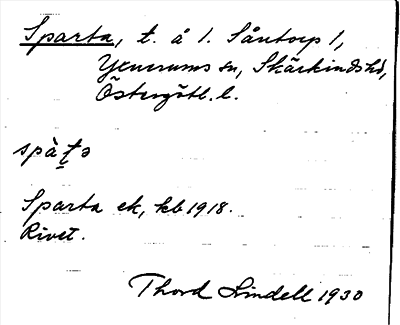 Sparta, t. å 1. Såntorp 1,
Yxnerums sn, Skärkinds hd,
Östergötl. l.
spàṭə
Sparta ek, kb 1918.
Rivet.
Thord Lindell 1930